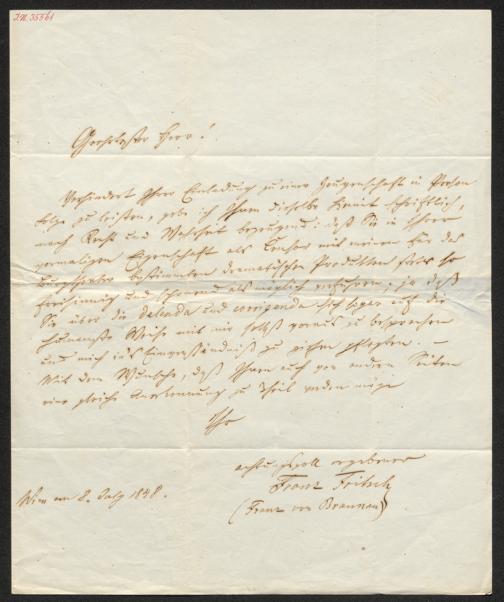 I.N. 35561
Geehrtester Herr!
Verhindert Ihrer Einladung zu einer Zeugenschaft in Person
Folge zu leisten, gebe ich Ihnen dieselbe hiemit schriftlich,
nach Recht und Wahrheit bezeugend: daß Sie in Ihrer
vormaligen Eigenschaft als Censor mit meinen für das
Burgtheater bestimmten dramatischen Produkten stets so
freisinnig und schonend als möglich verfuhren, ja daß
Sie über die Delenda und corrigenda sich sogar auf die
humanste Weise mit mir selbst voraus zu besprechen
und mich ins Einverständniß zu ziehen pflegten. –
Mit dem Wunsche, daß Ihnen auch von andern Seiten
eine gleiche Anerkennung zu Theil werden möge
Ihr
achtungsvoll ergebener
Franz Fritsch
(Franz von Braunau)
Wien am 8. July 1848.